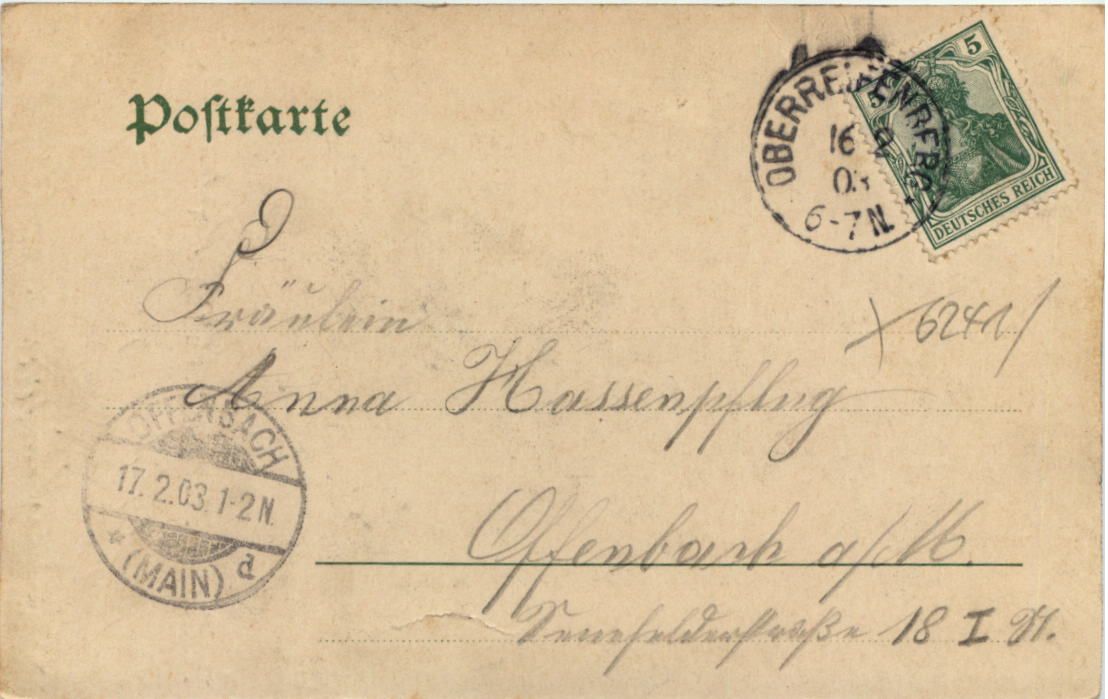 Postkarte
OBERREIFENBERG
16 2
03
6-7N.
5 5
DEUTSCHES REICH
Fräulein
6241
Anna Hassenpflug
OFFENBACH
17.2.03.1-2N.
(MAIN) d
Offenbach a/M.
Sennefelderstraße 18 I St.